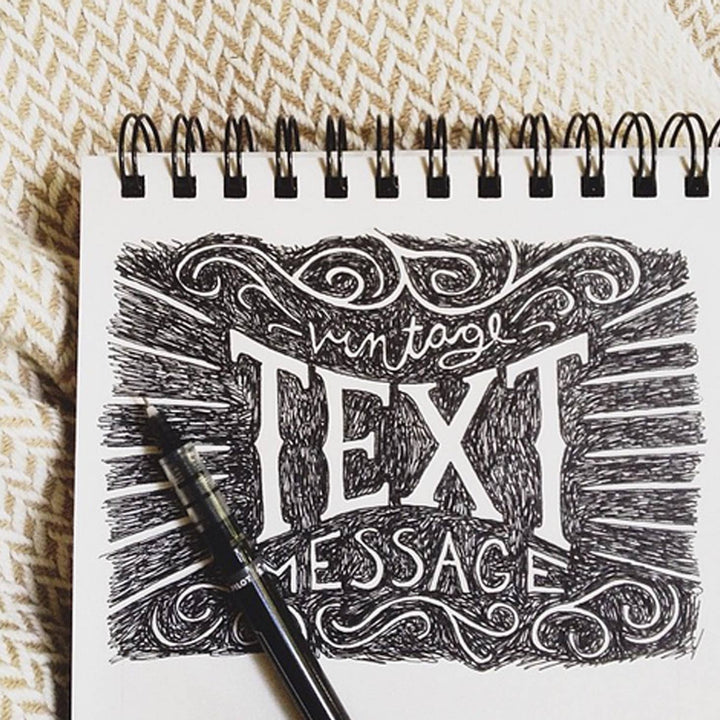 vintage
TEXT
MESSAGE
PILOT